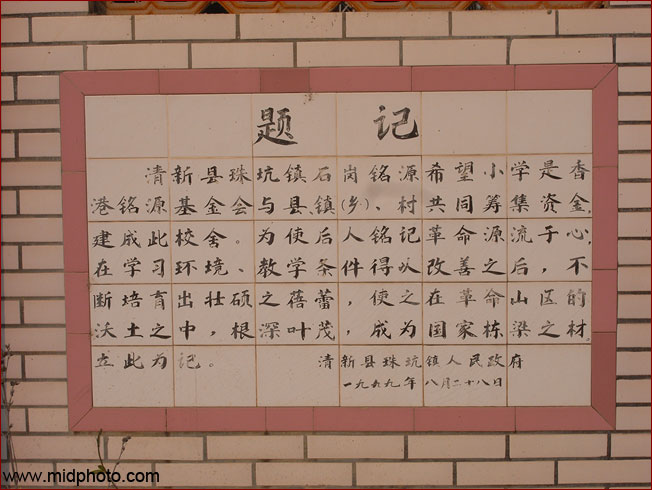 题 记
清新县珠坑镇石岗铭源希望小学是香
港铭源基金会与县、镇(乡)、村共同筹集资金，
建成此校舍。为使后人铭记革命源流于心，
在学习环境、教学条件得以改善之后，不
断培育出壮硕之蓓蕾，使之在革命山区的
沃土之中，根深叶茂，成为国家栋梁之材。
立此为记。 清新县珠坑镇人民政府
一九九九年八月二十八日
www.midphoto.com